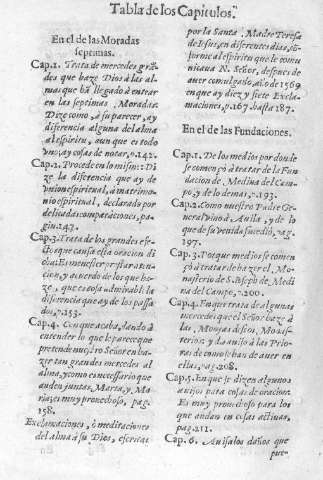 Tabla de los Capitulos.
En el de las Moradas
septimas.
Cap.1. Trata de mercedes grã-
des que haze Dios à las al-
mas que hã llegado à entrar
en las septimas Moradas.
Dize como, à su parecer, ay
diferencia alguna del alma
al espiritu, aun que es todo
vno, ay cosas de notar, p.142.
Cap.2. Procede en lo mismo: Di-
ze la diferencia que ay de
vnion espiritual, à matrimo-
nio espiritual, declarado por
delicadas comparaciones, pa-
gin.147.
Cap.3. Trata de los grandes efe-
ctos que causa esta oracion di
cha: Es menester prestar aten-
cion, y acuerdo de los que ha-
ze, que es cosa admirable la
diferencia que ay de los passa
dos, p.153.
Cap.4. Con que acaba, dando à
entender lo que le parece que
pretende nuestro Señor en ha-
zer tan grandes mercedes al
alma, y como es necessario que
anden juntas, Marta, y Ma-
ria: es muy prouechoso, pag.
158.
Exclamaciones, ò meditaciones
del alma à su Dios, escritas
por la Santa Madre Teresa
de Iesus, en diferentes dias, cõ-
forme al espiritu que le comu
nicaua N. Señor, despues
de auer comulgado, año de 1569
en que ay diez y siete Excla-
maciones, p.167. hasta 187.
En el de las Fundaciones.
Cap.1. De los medios por donde
se començò à tratar de la Fun
dacion de Medina del Cam-
po, y de lo demas, p.193.
Cap.2. Como nuestro Padre Ge-
neral vino à Auila, y de lo
que de su venida sucediò, pag.
197.
Cap.3. Porque medios se comen
çò à tratar de hazer el Mo-
nasterio de S. Ioseph, de Medi
na del Campo, p.200.
Cap.4. En que trata de algunas
mercedes que el Señor haze à
las Monjas destos Monas-
terios: y da auiso à las Prio-
ras de como se han de auer en
ellas, pag.208.
Cap.5. En que se dizen algunos
auisos para cosas de oracion.
Es muy prouechoso para los
que andan en cosas actiuas,
pag.211.
Cap.6. Auisa los daños que
pue-